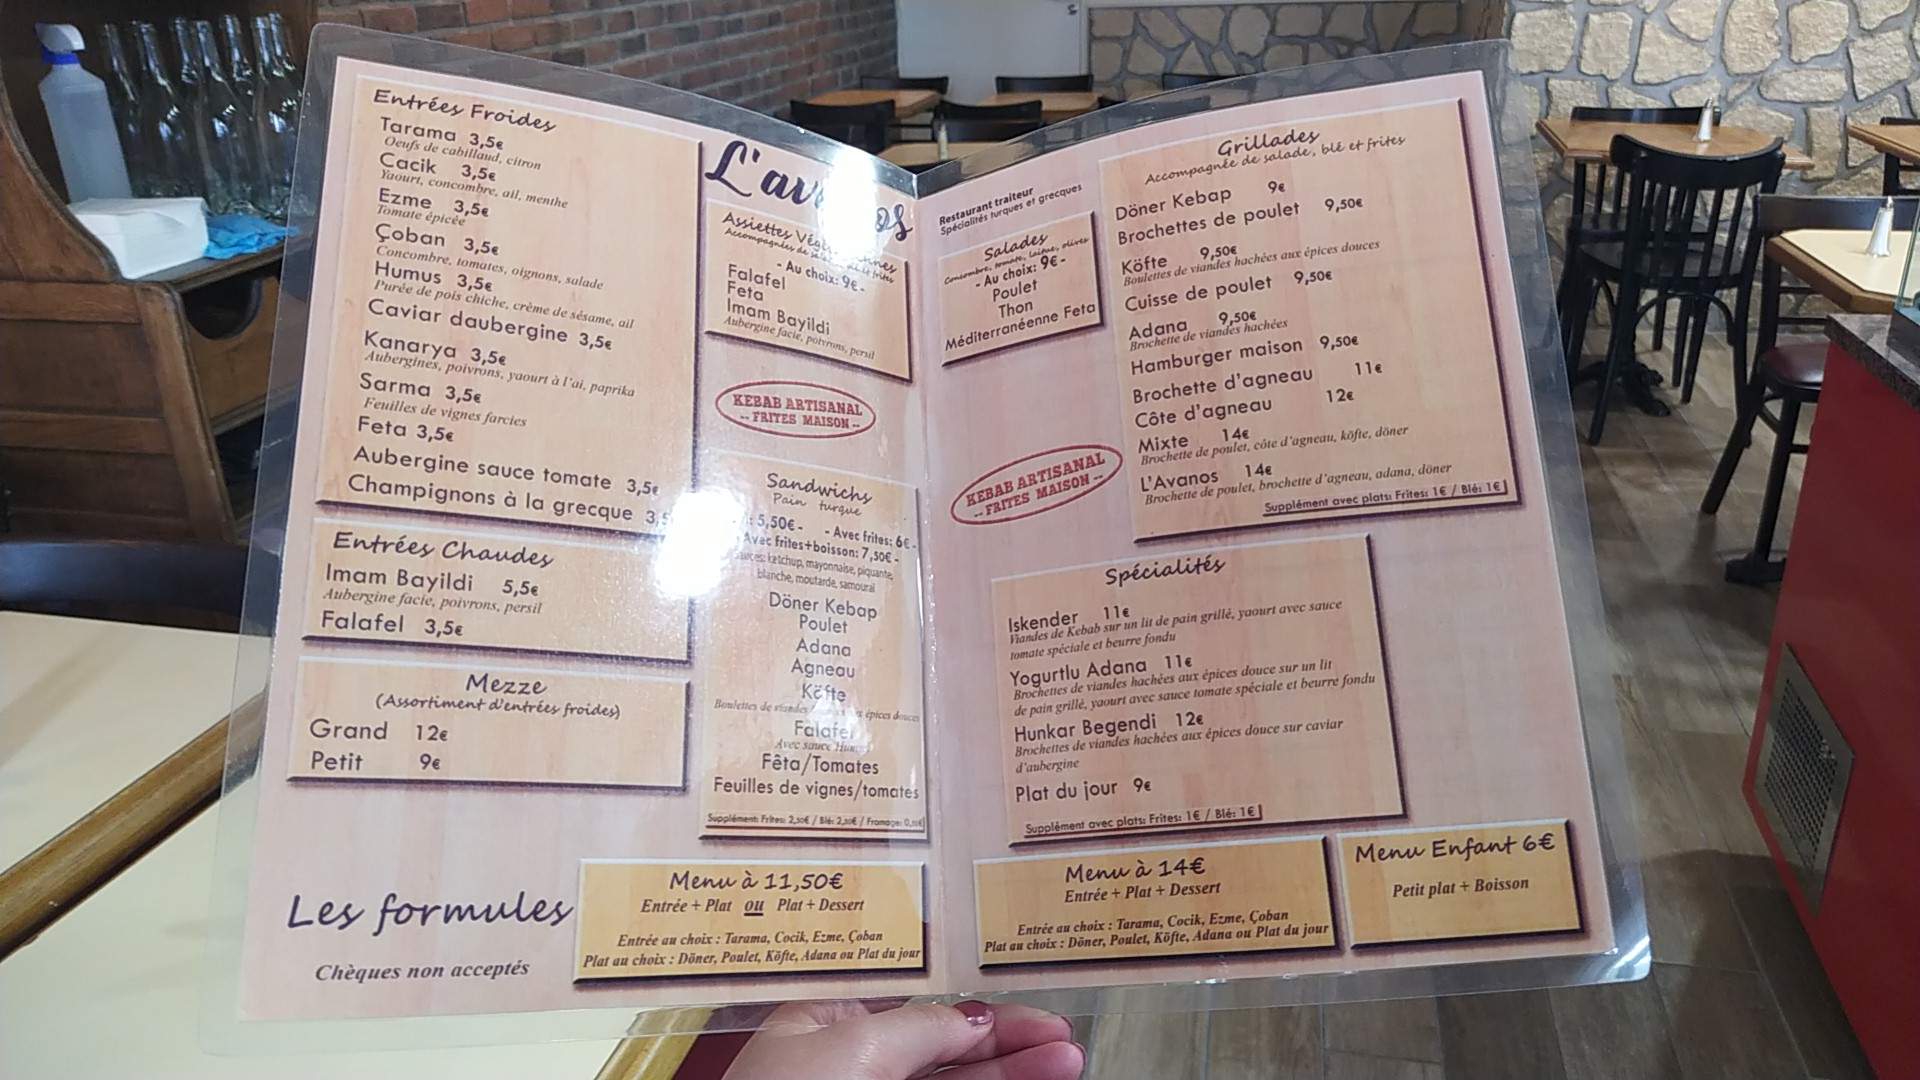 Entrées Froides
Tarama 3,5€
Oeufs de cabillaud, citron
Cacik 3,5€
Yaourt, concombre, ail, menthe
Ezme 3,5€
Tomate épicée
Çoban 3,5€
Concombre, tomates, oignons, salade
Humus 3,5€
Purée de pois chiche, crème de sésame, ail
Caviar daubergine 3,5€
Kanarya 3,5€
Aubergines, poivrons, yaourt à l'ai, paprika
Sarma 3,5€
Feuilles de vignes farcies
Feta 3,5€
Aubergine sauce tomate 3,5€
Champignons à la grecque
Entrées Chaudes
Imam Bayildi 5,5€
Aubergine facie, poivrons, persil
Falafel 3,5€
Mezze
(Assortiment d'entrées froides)
Grand 12€
Petit 9€
Les formules
Chèques non acceptés
Assiettes
Accompagnées de et frites
- Au choix: 9€ -
Falafel
Feta
Imam Bayildi
Aubergine facie, poivrons, persil
KEBAB ARTISANAL
-- FRITES MAISON --
Sandwichs
Pain turque
5,50€ - - Avec frites: 6€ -
Avec frites+boisson: 7,50€ -
ketchup, mayonnaise, piquante,
blanche, moutarde, samouraï
Döner Kebap
Poulet
Adana
Agneau
Köfte
Boulettes de viandes épices douces
Falafel
Avec sauce Humus
Fêta/Tomates
Feuilles de vignes/tomates
Supplément: Frites: 2,50€ / Blé: 2,50€ / Fromage: 0,50€
Menu à 11,50€
Entrée + Plat ou Plat + Dessert
Entrée au choix : Tarama, Cocik, Ezme, Çoban
Plat au choix : Döner, Poulet, Köfte, Adana ou Plat du jour
Restaurant traiteur
Spécialités turques et grecques
Salades
Concombre, tomate, laitue, olives
- Au choix: 9€ -
Poulet
Thon
Méditerranéenne Feta
KEBAB ARTISANAL
-- FRITES MAISON --
Grillades
Accompagnée de salade, blé et frites
Döner Kebap 9€
Brochettes de poulet 9,50€
Köfte 9,50€
Boulettes de viandes hachées aux épices douces
Cuisse de poulet 9,50€
Adana 9,50€
Brochette de viandes hachées
Hamburger maison 9,50€
Brochette d'agneau 11€
Côte d'agneau 12€
Mixte 14€
Brochette de poulet, côte d'agneau, köfte, döner
L'Avanos 14€
Brochette de poulet, brochette d'agneau, adana, döner
Supplément avec plats: Frites: 1€ / Blé: 1€
Spécialités
Iskender 11€
Viandes de Kebab sur un lit de pain grillé, yaourt avec sauce
tomate spéciale et beurre fondu
Yogurtlu Adana 11€
Brochettes de viandes hachées aux épices douce sur un lit
de pain grillé, yaourt avec sauce tomate spéciale et beurre fondu
Hunkar Begendi 12€
Brochettes de viandes hachées aux épices douce sur caviar
d'aubergine
Plat du jour 9€
Supplément avec plats: Frites: 1€ / Blé: 1€
Menu à 14€
Entrée + Plat + Dessert
Entrée au choix : Tarama, Cocik, Ezme, Çoban
Plat au choix : Döner, Poulet, Köfte, Adana ou Plat du jour
Menu Enfant 6€
Petit plat + Boisson